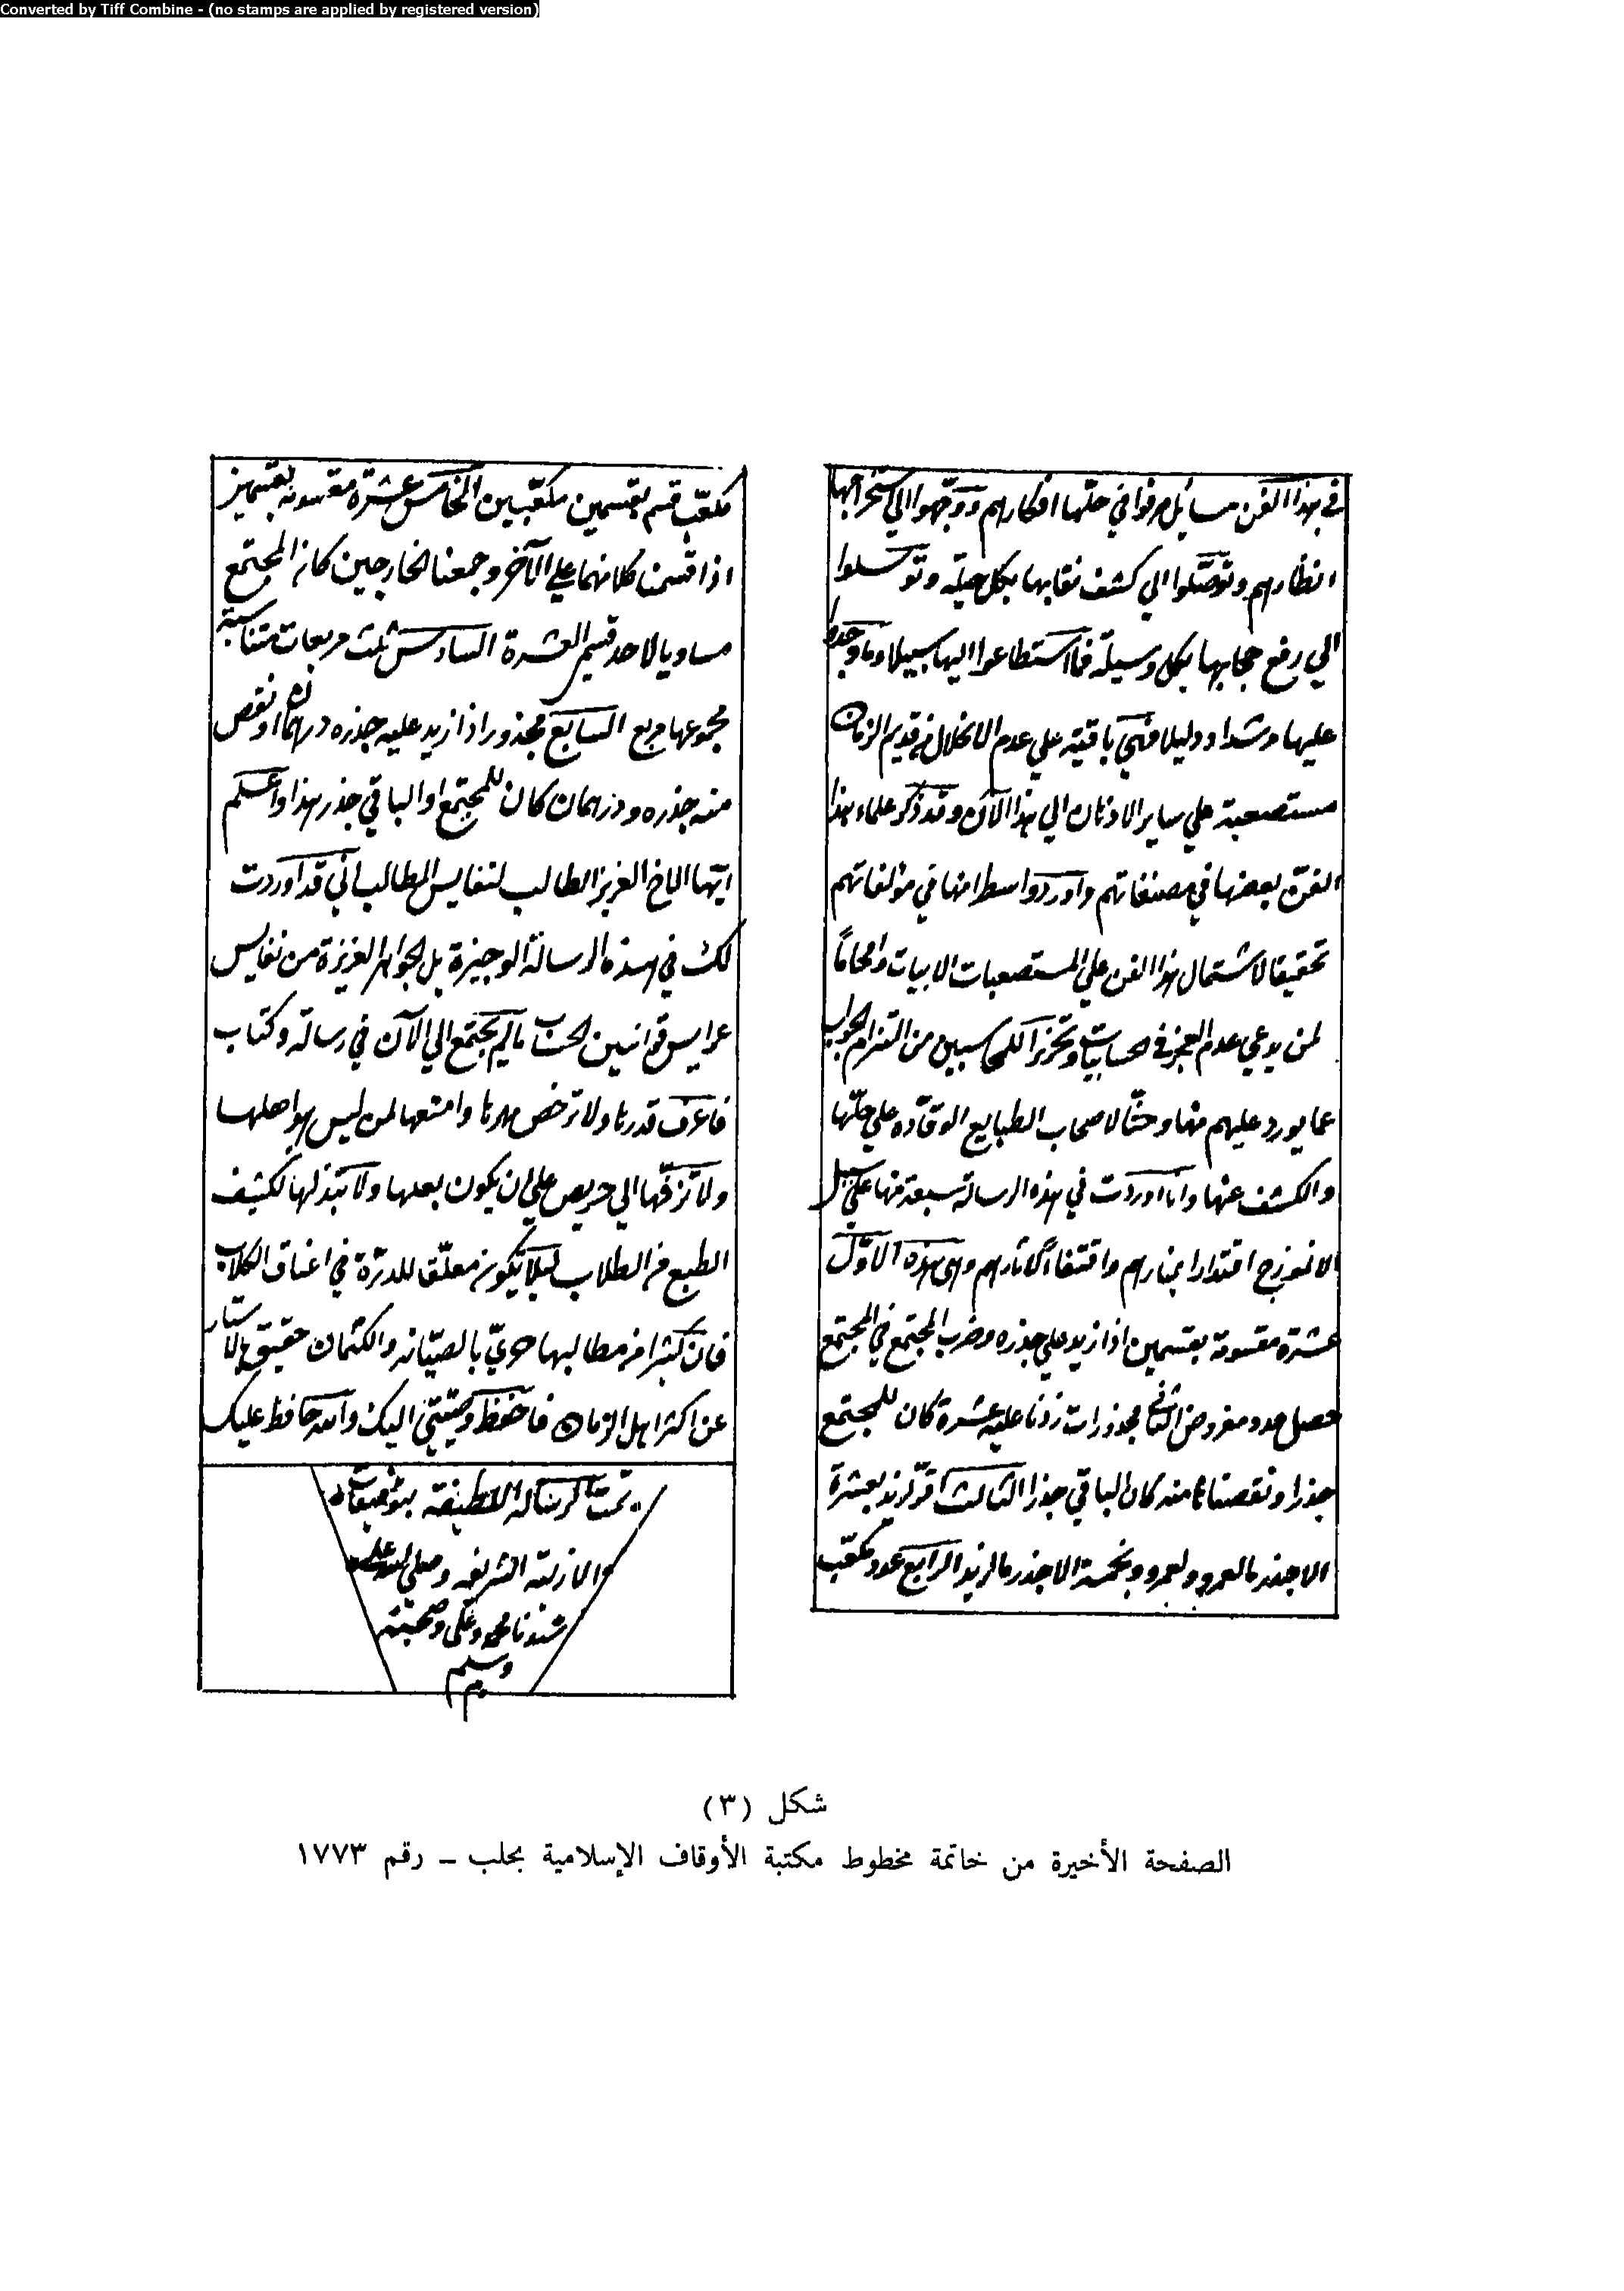 Converted by Tiff Combine - (no stamps are applied by registered version)
في هذا الفن مسايل صرفوا في حلّها افكارهم ووجّهوا الي استخراجها
انظارهم وتوصّلوا الي كشف نقابها بكل حيلة وتوسلوا
الي رفع حجابها بكل وسيلة فما استطاعوا اليها سبيلا وما وجدوا
عليها مرشدا ودليلا فهي باقية علي عدم الانحلال من قديم الزمان
مستصعبة علي ساير الاذهان الي هذا الآن وقد ذكر علماء هذا
الفن بعضها في مصنفاتهم واوردوا سطرا منها في مؤلفاتهم
تحقيقا لاشتمال هذا الفن علي المستصعبات الابيات وافحاماً
لمن يدعي عدم العجز في الحسابيات وتحذيرا للمحاسبين من التزام الجواب
عما يورد عليهم منها وحثّا لاصحاب الطبايع الوقّاده علي حلّها
والكشف عنها وانا اوردت في هذه الرسالة سبعة منها علي سبيل
الانموزج اقتدارا بمنارهم واقتفاءً لاثارهم وهي هذه الاوّل
عشرة مقسومة بقسمين اذا زيد علي جذره وضرب المجتمع في المجتمع
حصل عدد مفروض الثاني مجذورات زدنا عليه عشرة كان للمجتمع
جذرا ونقصناها منه كان للباقي جذر الثالث اقرّ لزيد بعشرة
الا جذر مالعمرو ولعمرو بخمسة الا جذر مالزيد الرابع عدد مكعّب
مكعّب قسم بقسمين مكعّبين الخامس عشرة مقسومة بقسمين
اذا قسمنا كلا منهما علي الآخر وجمعنا الخارجين كان المجتمع
مساويا لاحد قسمي العشرة السادس ثلث مربعات متناسبة
مجموعها مربع السابع مجذور اذا زيد عليه جذره ودرهمان او نقص
منه جذره ودرهمان كان للمجتمع او الباقي جذر هذا واعلم
ايّها الاخ العزيز الطالب لنفايس المطالب انّي قد اوردت
لك في هذه الرسالة الوجيزة بل الجواهر العزيزة من نفايس
عرايس قوانين الحساب ما لم يجتمع الي الآن في رسالة وكتاب
فاعرف قدرها ولا ترخص مهرها وامنعها لمن ليس هو اهلها
ولا تزفّها الي حريص علي ان يكون بعلها ولا تبذلها لكثيف
الطبع من الطلاب ليلا تكون معلّق للدرّة في اعناق الكلاب
فان كثيرا من مطالبها حريّ بالصيّانة والكتمان حقيق بالاستتار
عن اكثر اهل الزمان فاحفظ وصيّتي اليك والله حافظ عليك
تمت الرسالة اللطيفة بتوفيقات
الازلية الشريفة وصلى الله على
سيدنا محمد وعلى وصحبه
وسلم
م
شكل (٣)
الصفحة الأخيرة من خاتمة مخطوط مكتبة الأوقاف الإسلامية بحلب ــ رقم ١٧٧٣